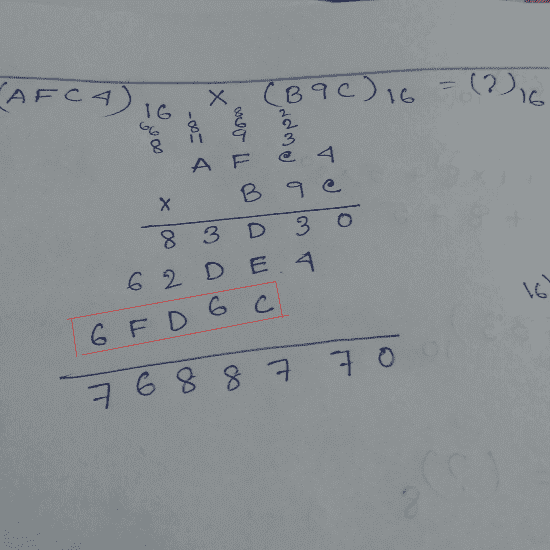 (AFC4)16 X (B9C)16 = (?)16
66 1 8 2
66 8 6 2
8 11 9 3
A F C 4
X B 9 C
8 3 D 3 0
6 2 D E 4
6 F D 6 C
7 6 8 8 7 7 0
16)